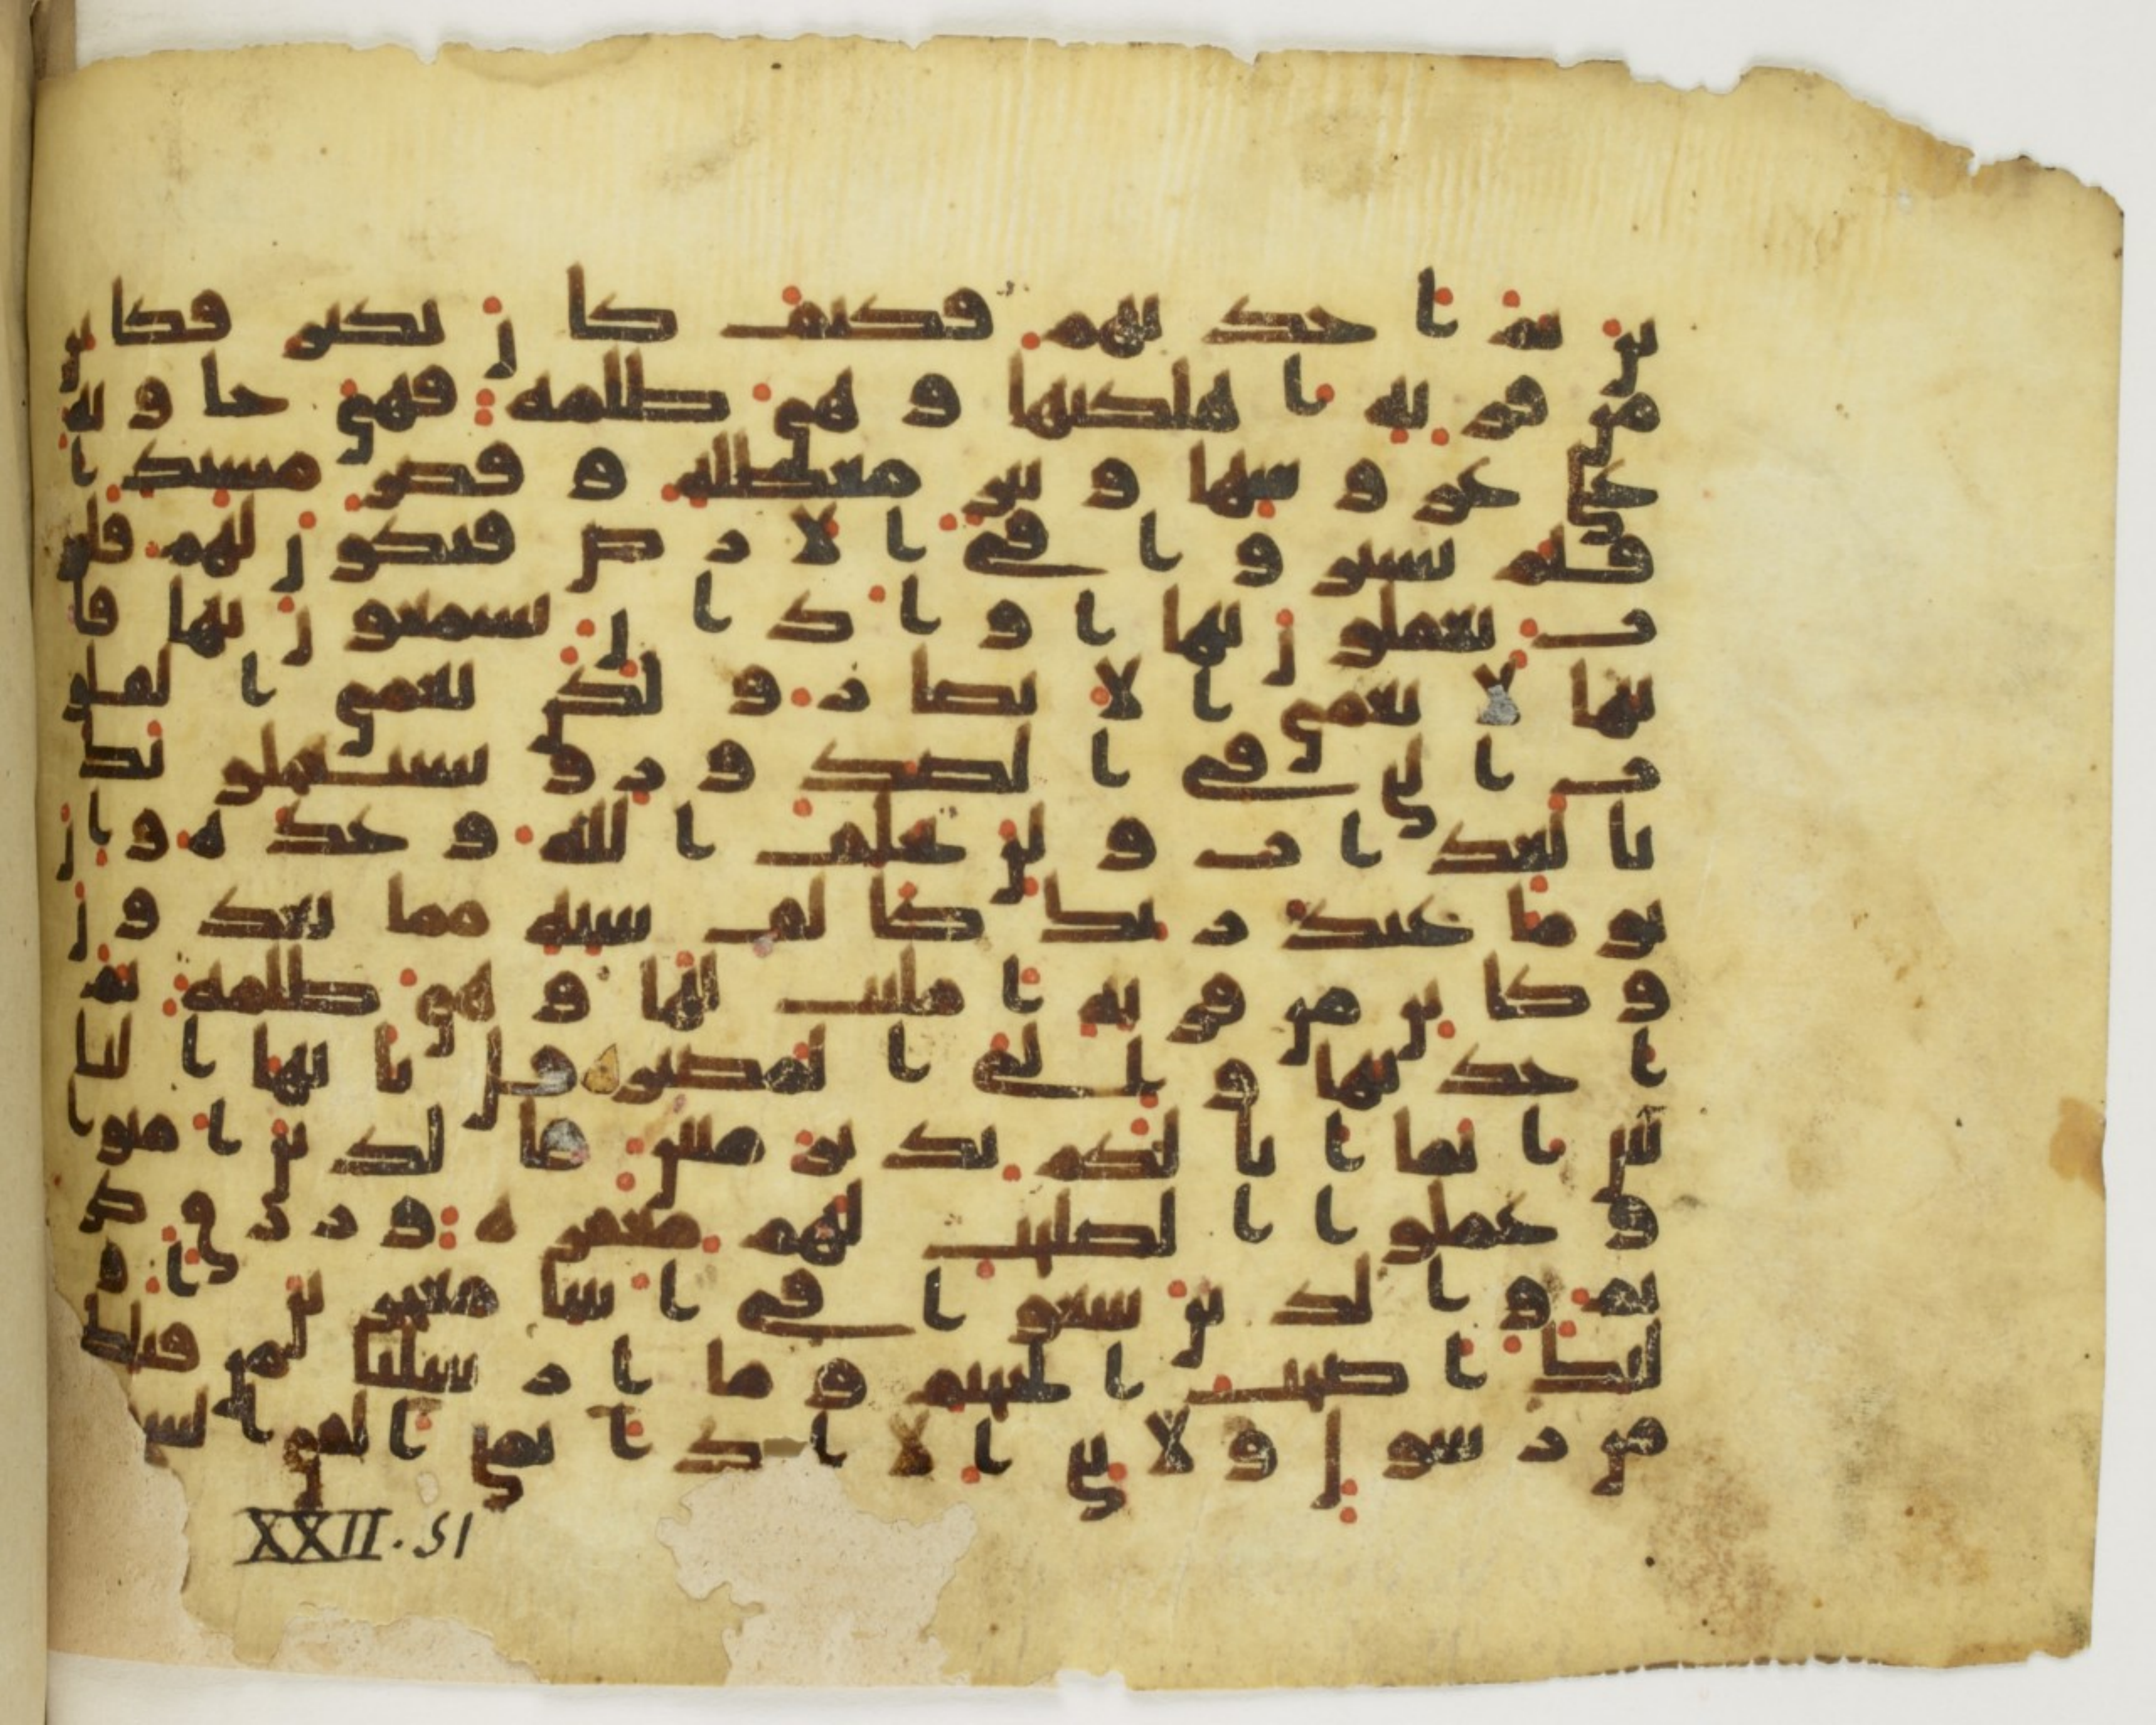 ين ثم اخذتهم فكيف كان نكير فكاين
من قرية اهلكنها وهي ظلمة فهي خاوية
على عروشها وبير معطلة وقصر مشيد ا
فلم يسيروا في الارض فتكون لهم قلو
ب يعقلون بها او اذان يسمعون بها فا
نها لا تعمى الابصار ولكن تعمى القلو
ب التي في الصدور ويستعجلونك
بالعذاب ولن يخلف الله وعده وان
يوما عند ربك كالف سنة مما تعدون
وكاين من قرية امليت لها وهي ظلمة ثم
اخذتها والي المصير قل يايها النا
س انما انا لكم نذير مبين فالذين امنوا
وعملوا الصلحت لهم مغفرة ورزق كر
يم والذين سعوا في ايتنا معجزين او
ليك اصحب الجحيم وما ارسلنا من قبلك
من رسول ولا نبي الا اذا تمنى القى الشـ
XXII. 51